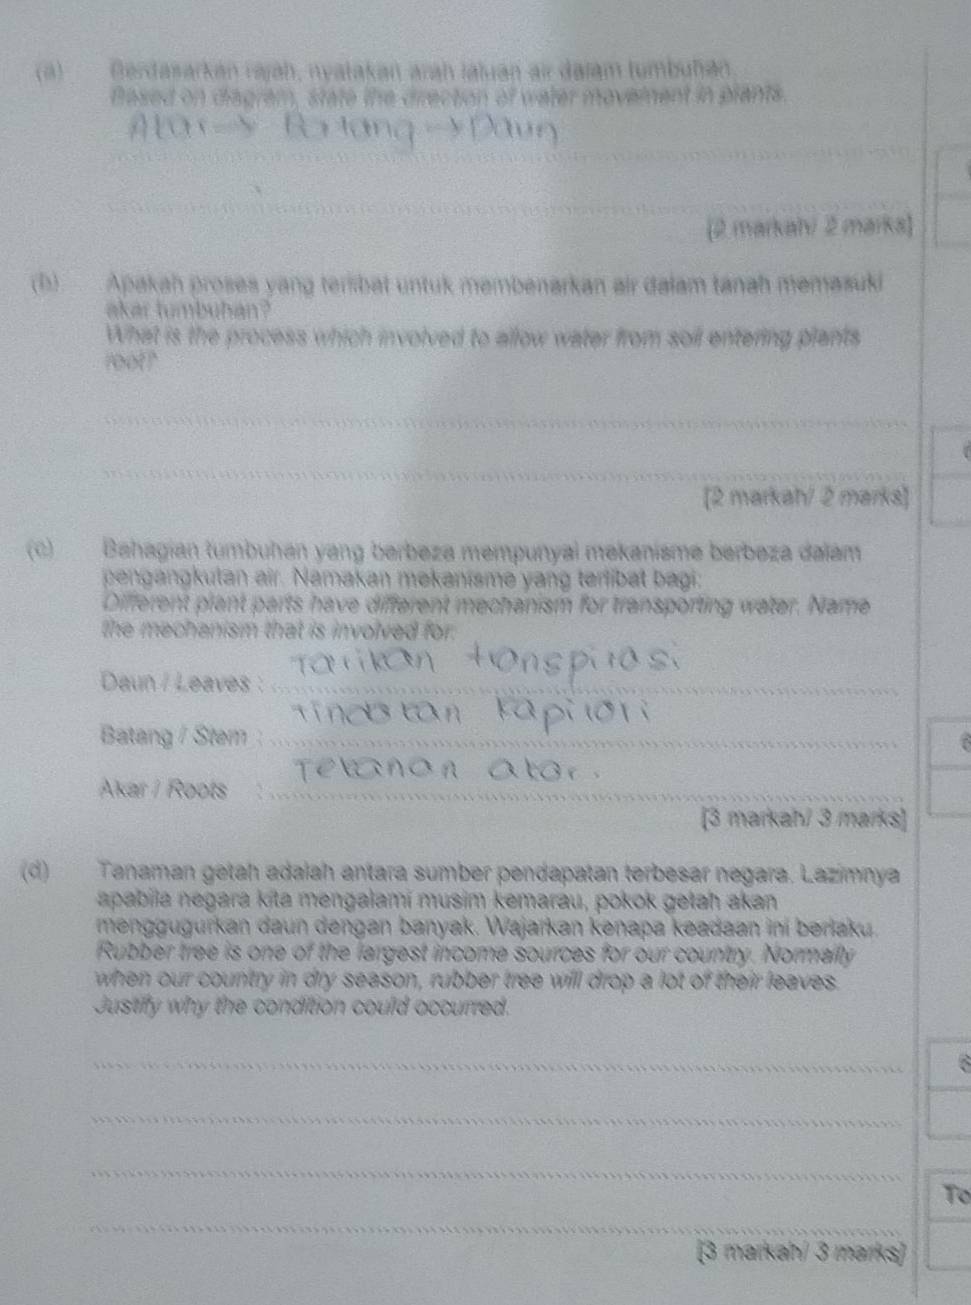 (a) Berdasarkan rajah, nyatakan arah laluan air dalam tumbuhan.
Based on diagram, state the direction of water movement in plants.
Akar → Batang → Daun
[2 markah/ 2 marks]
(b) Apakah proses yang terlibat untuk membenarkan air dalam tanah memasuki
akar tumbuhan?
What is the process which involved to allow water from soil entering plants
root?
[2 markah/ 2 marks]
(c) Bahagian tumbuhan yang berbeza mempunyai mekanisme berbeza dalam
pengangkutan air. Namakan mekanisme yang terlibat bagi:
Different plant parts have different mechanism for transporting water. Name
the mechanism that is involved for:
Daun / Leaves : Tarikan transpirasi
Batang / Stem : Tindakan kapilari
Akar / Roots : Tekanan akar.
[3 markah/ 3 marks]
(d) Tanaman getah adalah antara sumber pendapatan terbesar negara. Lazimnya
apabila negara kita mengalami musim kemarau, pokok getah akan
menggugurkan daun dengan banyak. Wajarkan kenapa keadaan ini berlaku.
Rubber tree is one of the largest income sources for our country. Normally
when our country in dry season, rubber tree will drop a lot of their leaves.
Justify why the condition could occurred.
To
[3 markah/ 3 marks]